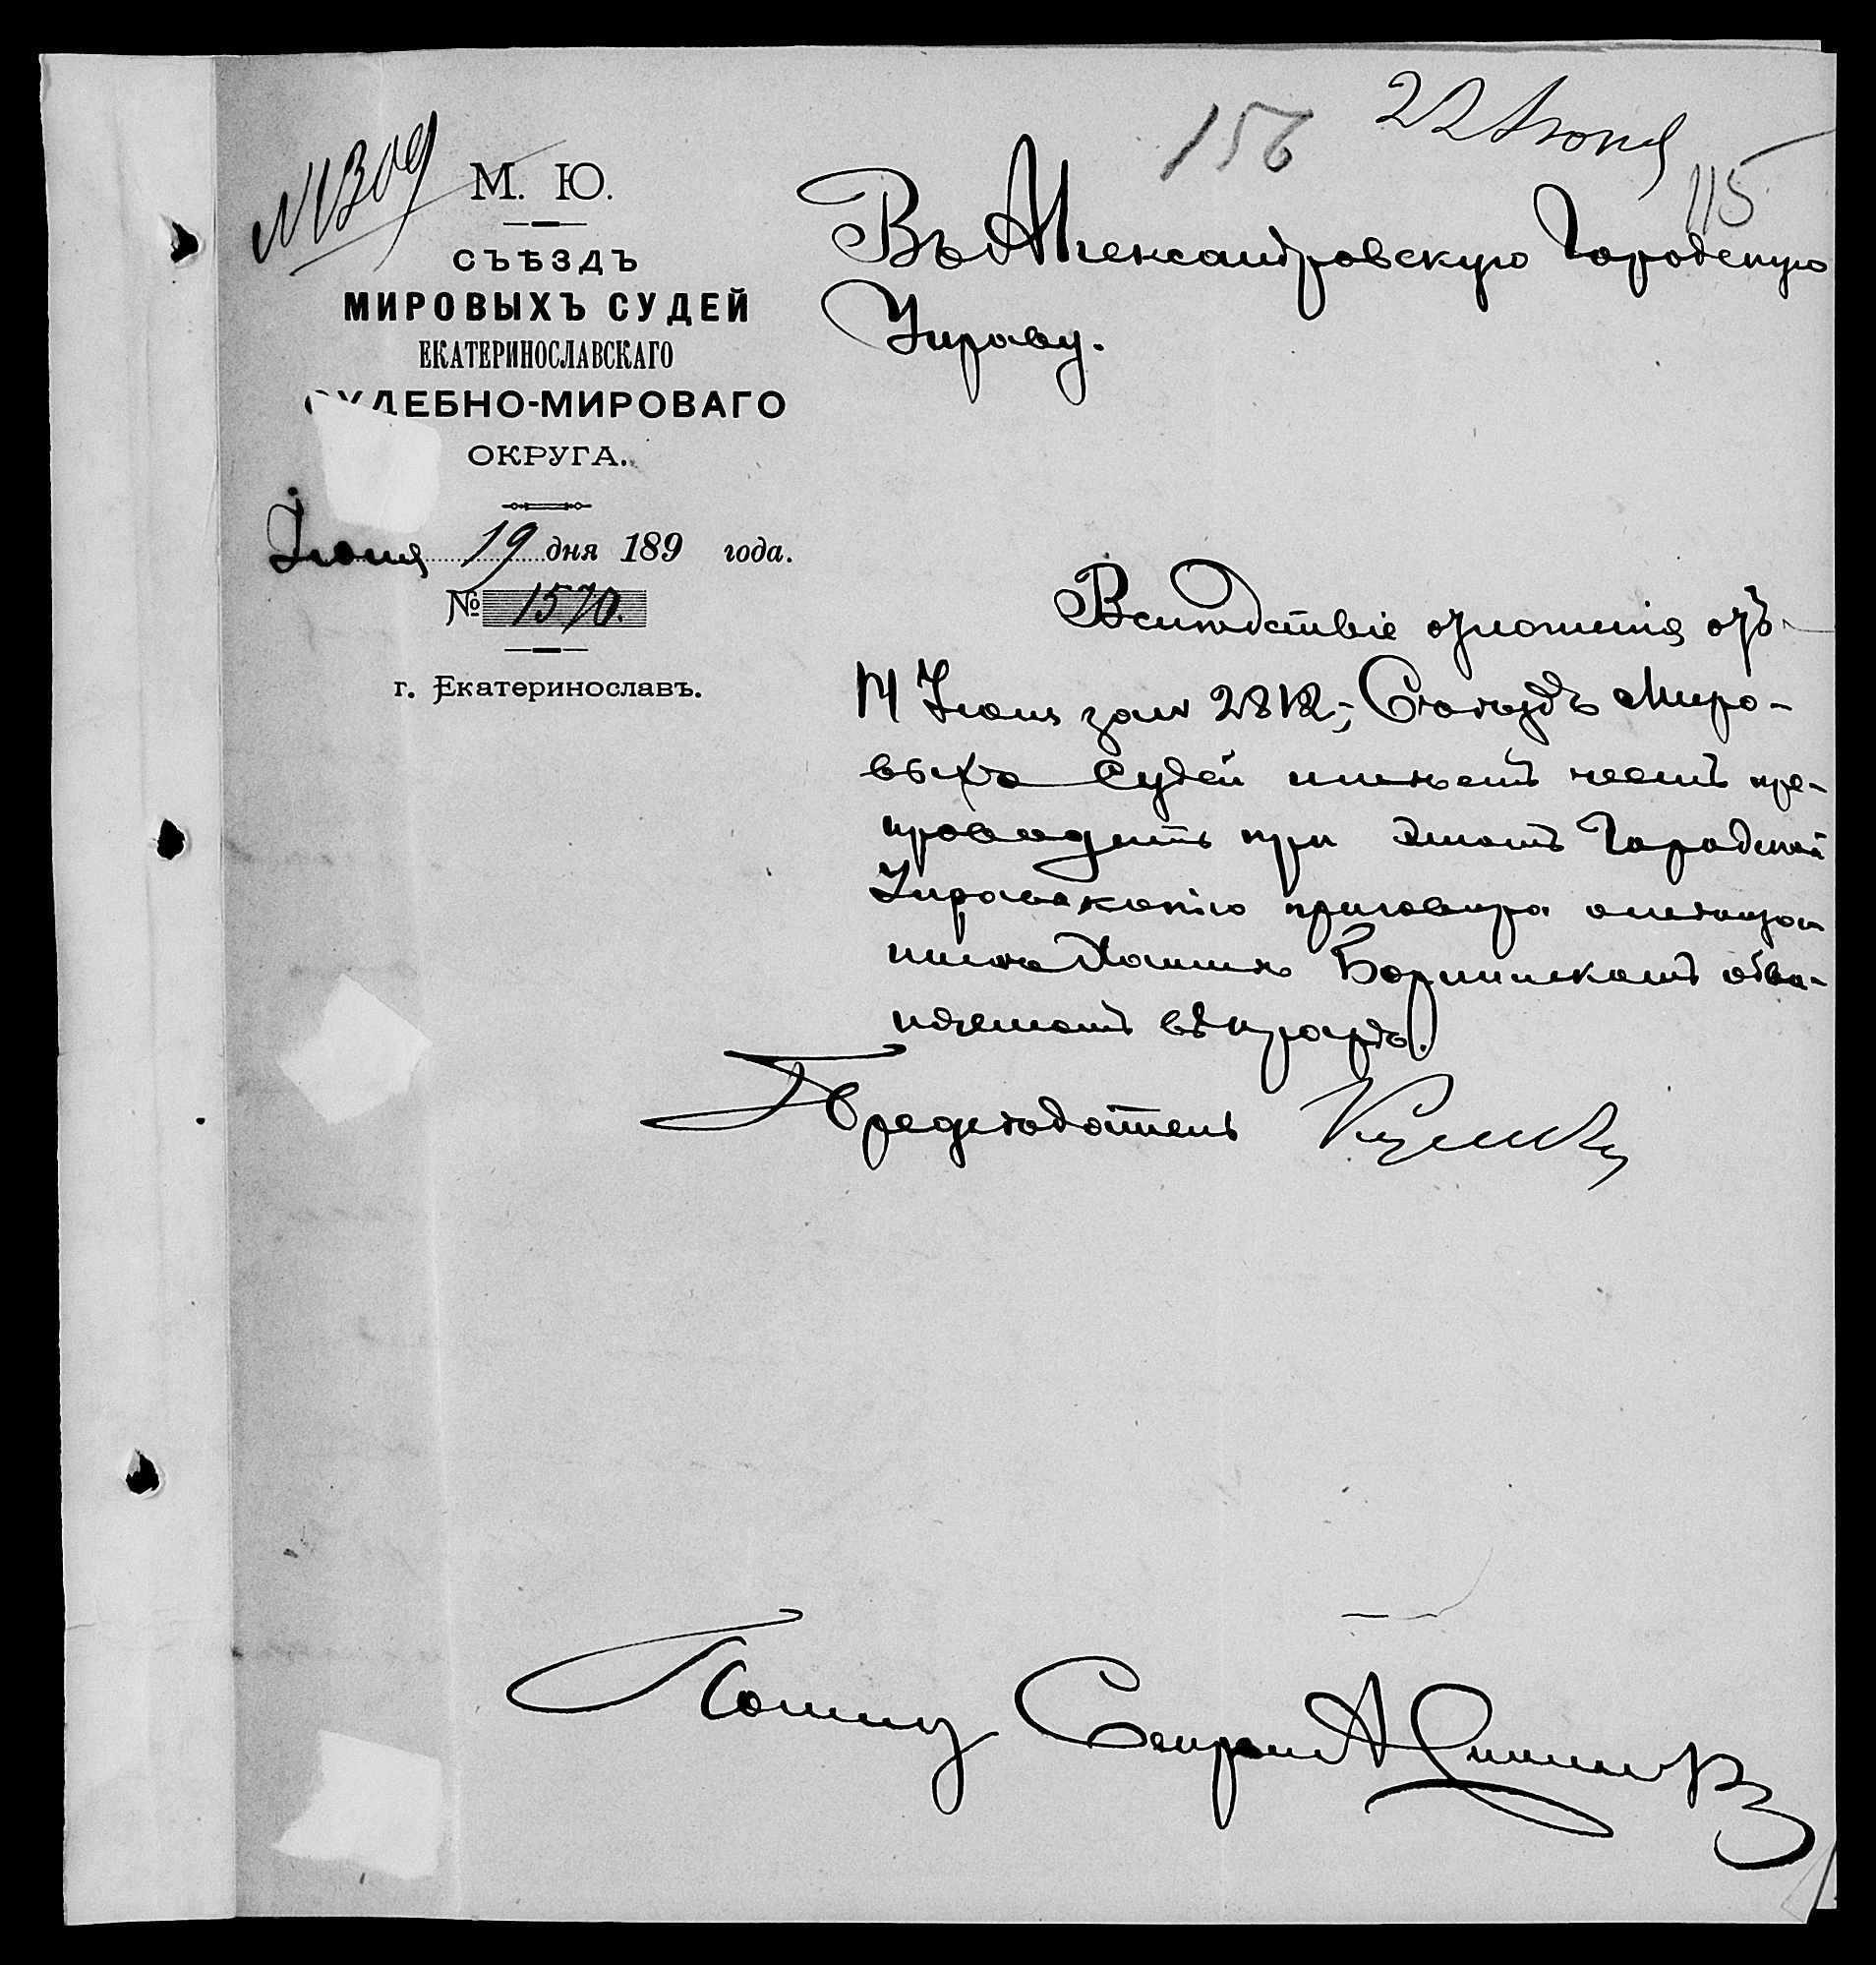 156
22 Июня
115
№ 1309
М. Ю.
СЪѢЗДЪ
МИРОВЫХЪ СУДЕЙ
ЕКАТЕРИНОСЛАВСКАГО
СУДЕБНО-МИРОВАГО
ОКРУГА.
Іюня 19 дня 189 года.
№ 1570.
г. Екатеринославъ.
Въ Александровскую Городскую
Управу.
Вслѣдствіе отношенія отъ
14 Іюня за № 2812, Съѣздъ Миро-
выхъ Судей имѣетъ честь пре-
проводить при этомъ Городской
Управѣ копію приговора о мѣща-
нинѣ Боришскомъ обви-
няемомъ въ кражѣ.
Предсѣдатель
Помощ. Секрет.